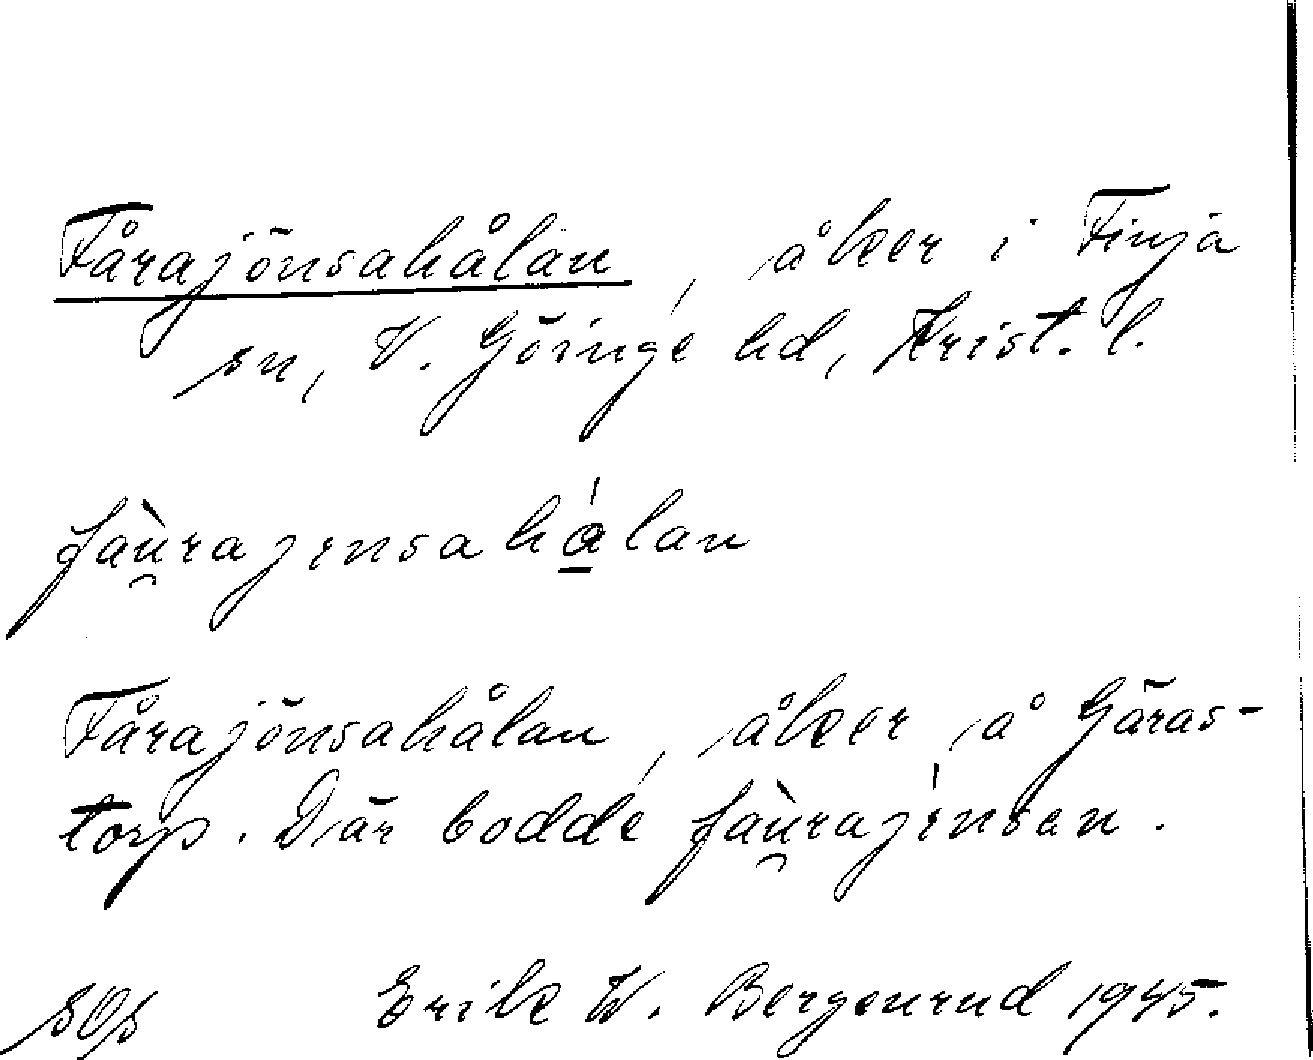 Fårajönsahålan, åker i Finja
sn, V. Göinge hd, Krist. l.
fàu̯rajensahá̲lan
Fårajönsahålan, åker å Göras-
torp. Där bodde fàu̯rajénsen.
Erik W. Bergenrud 1945.